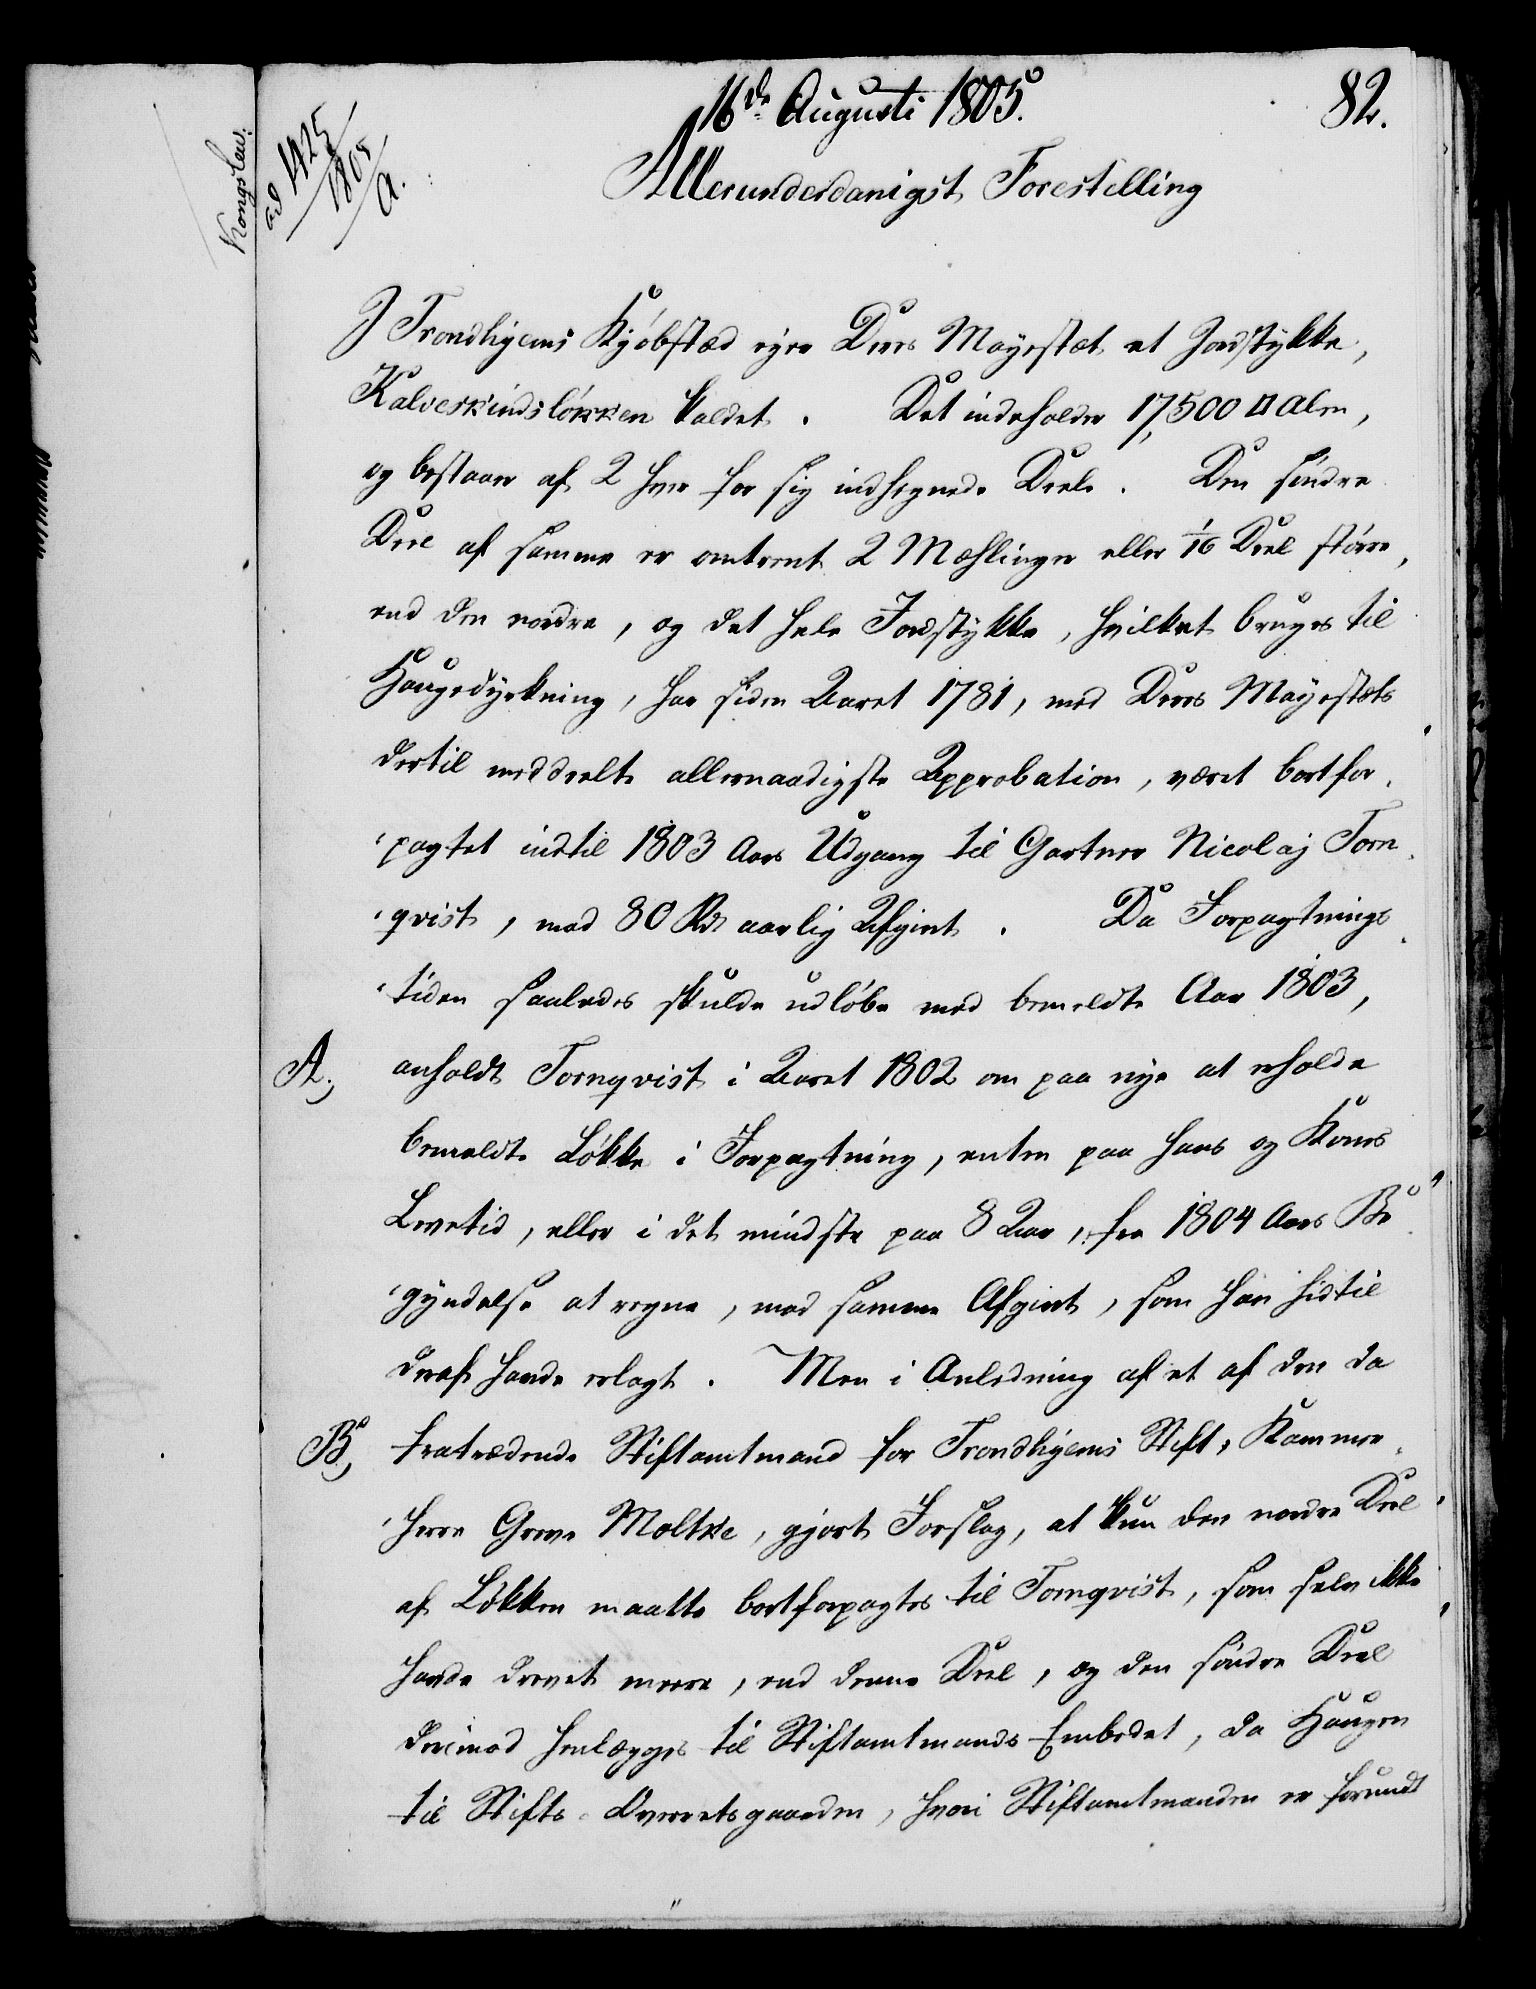 16de Augusti 1805.
82.
Kongslew:
ad 1425/1805/A.
Allerunderdanigst Forestilling
I Trondhjems Kjöbstæd ejer Deres Majestæt et Jordstykke,
Kalveskindslökken kaldet. Det indeholder 17,500 □ Alen,
og bestaaer af 2 hver for sig indhegnede Deele. Den söndre
Deel af samme er omtrent 2 Mæhlinger eller 1/16 Deel större,
end den nordre, og det hele Jordstykke, hvilket bruges til
Haugedyrkning, har siden Aaret 1781, med Deres Majestæts
dertil meddeelte allernaadigste Approbation, været bortfor-
pagtet indtil 1803 Aars Udgang til Gartner Nicolaj Torn-
qvist, mod 80 Rdr aarlig Afgivt. Da Forpagtnings-
tiden saaledes skulde udlöbe med bemeldte Aar 1803,
A., anholdt Tornqvist i Aaret 1802 om paa nye at erholde
bemeldte Lökke i Forpagtning, enten paa hans og Kones
Levetid, eller i det mindste paa 8 Aar, fra 1804 Aars Be-
gyndelse at regne, mod samme Afgivt, som han hidtil
deraf havde erlagt. Men i Anledning af et af den da
B., fratrædende Stiftamtmand for Trondhjems Stift, Kammer-
herre Greve Moltke, gjort Forslag, at kun den nordre Deel
af Lökken maatte bortforpagtes til Tornqvist, som selv ikke
havde drevet meere, end denne Deel, og den söndre Deel
derimod henlægges til Stiftamtmands-Embedet, da Haugen
til Stifts-Overretsgaarden, hvori Stiftamtmanden er forundt